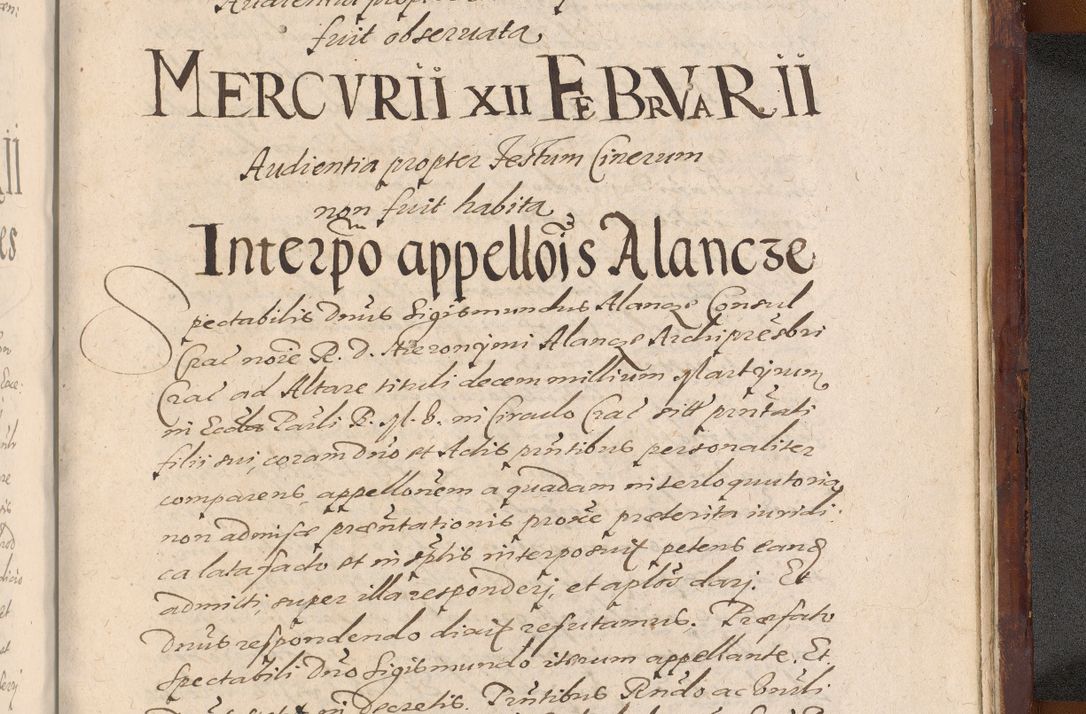 fuit obseruata
MERCVRII XII FEBRVARII
Audientia propter Festum Cinerum
non fuit habita
Interpo͠ appello͠is Alancze
Spectabilis Dnus Sigismundus Alancze Consul
Crac noie R. D. Hieronymi Alancze Archipresbri
Crac ad Altare tituli decem millium Martyrum
in Eccla Parli B. M. V. in Circulo Crac siti pntati
filii sui, coram dno et Actis pntibus personaliter
comparens, appellonem a quadam interloquutoria
non admissae praesentationis proxe praeterita iuridi
ca lata facto et in scptis interposuit petens eand
admitti, super illa responderj, et aplos darj. Et
dnus respondendo dixit refutamus. Praefato
Spectabili Dno Sigismundo iterum appellante. Et
in decretis. Pntibus Rndo ac Onrli